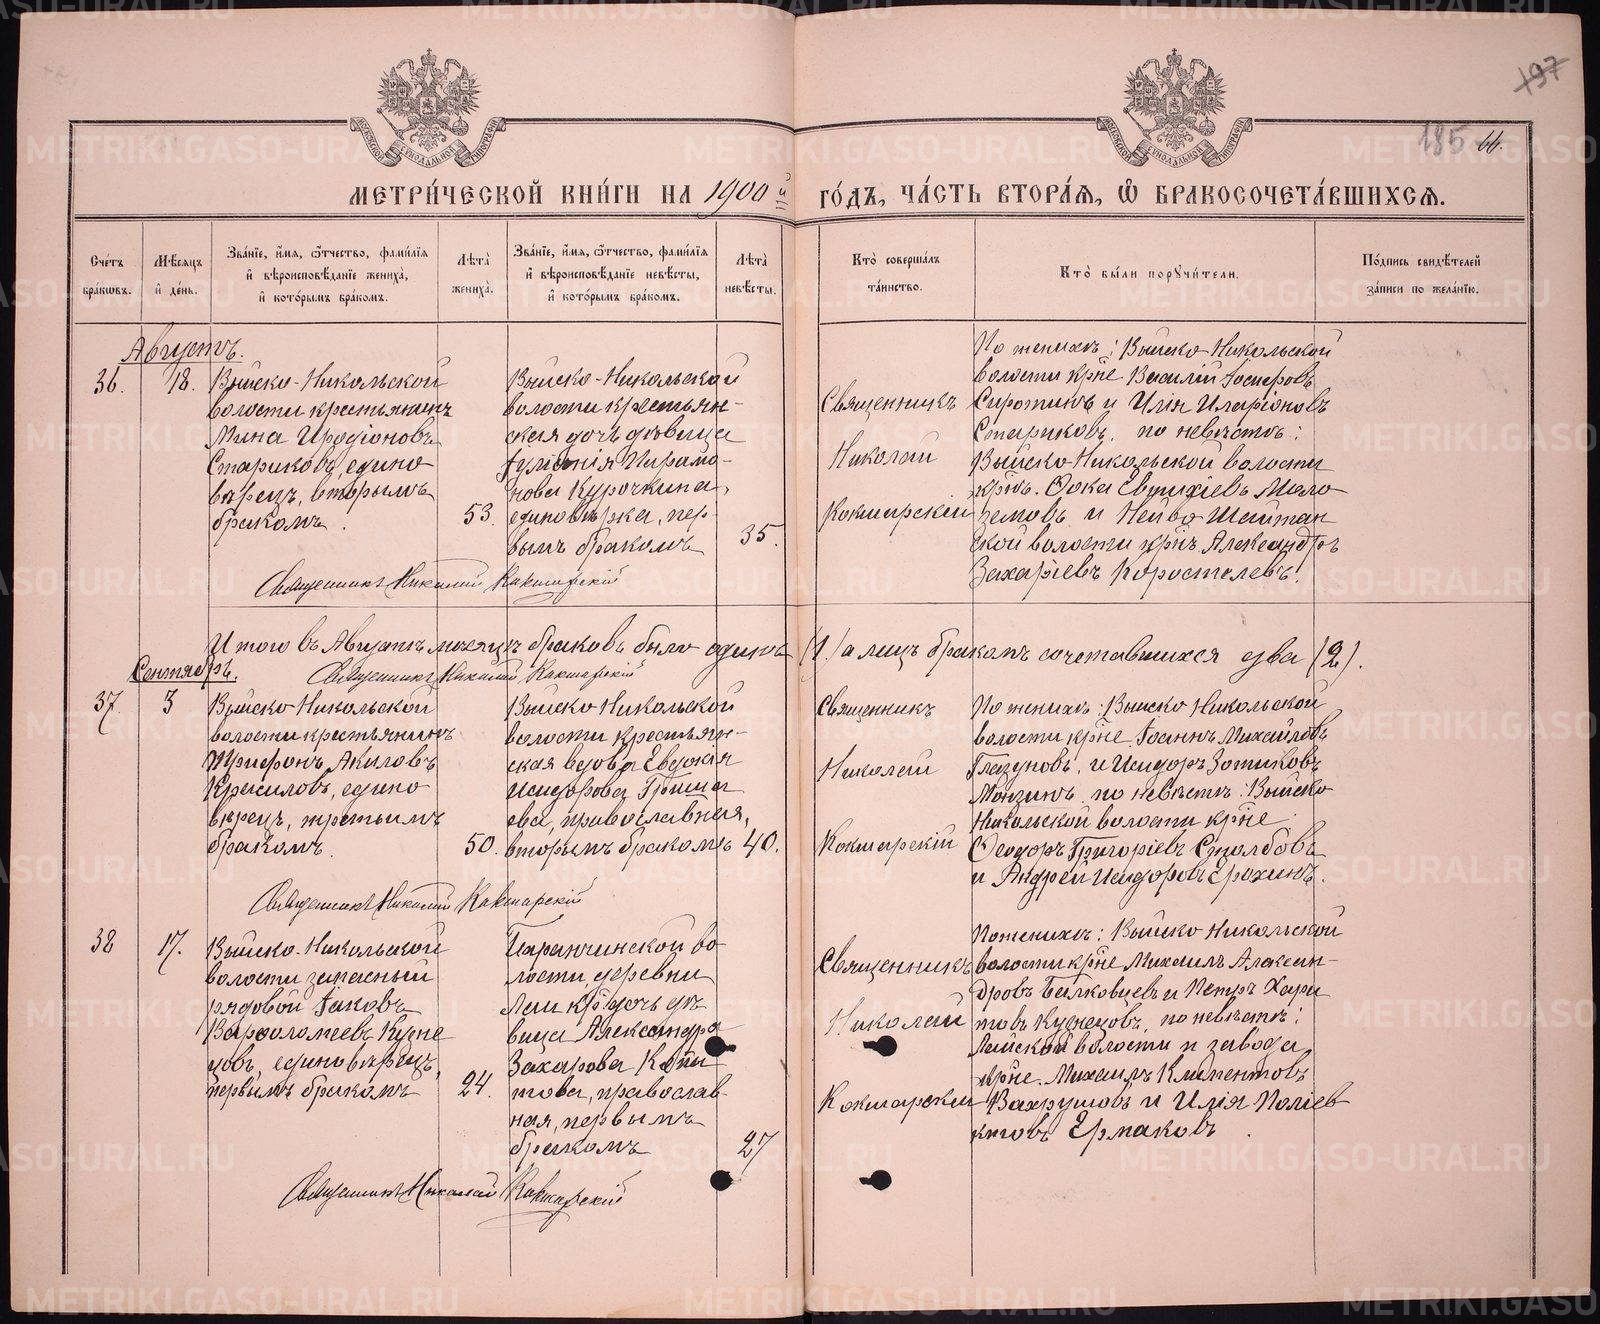 197
185
66.
МОСКОВСКОЙ СѴНОДАЛЬНОЙ ТИПОГРАФІИ
МОСКОВСКОЙ СѴНОДАЛЬНОЙ ТИПОГРАФІИ
МЕТРИ́ЧЕСКОЙ КНИ́ГИ НА 1900й ГО́ДЪ, ЧА́СТЬ ВТОРА́Я, Ѽ БРАКОСОЧЕТА́ВШИХСЯ.
Сче́тъ
бра́кωвъ.
Мѣ́сяцъ
и҆ де́нь.
Зва́нїе, и҆́мя, ѻ҆́тчество, фами́лїя
и҆ вѣроисповѣ́данїе жениха̀,
и҆ кото́рымъ бра́комъ.
Лѣ́та
жениха̀.
Зва́нїе, и҆́мя, ѻ҆́тчество, фами́лїя
и҆ вѣроисповѣ́данїе невѣ́сты,
и҆ кото́рымъ бра́комъ.
Лѣ́та
невѣ́сты.
Кто̀ соверша́лъ
та́инство.
Кто̀ бы́ли порꙋчи́тели.
По́дпись свидѣ́телей
за́писи по жела́нїю.
Августъ.
36.
18.
Выйско-Никольской
волости крестьянинъ
Мина Иродіоновъ
Стариковъ, едино
вѣрецъ, вторымъ
бракомъ.
53.
Выйско-Никольской
волости крестьян-
ская дочь дѣвица
Іуліанія Парамо-
нова Курочкина,
единовѣрка, пер-
вымъ бракомъ
35.
Священникъ
Николай
Кокшарскій
По женихѣ: Выйско Никольской
волости крне Василій Іосифовъ
Сиротинъ и Илія Иларіоновъ
Стариковъ, по невѣстѣ:
Выйско-Никольской волости
крнъ. Фока Евтихіевъ Мало
земовъ и Нейво Шайтан
ской волости крнъ Александръ
Захаріевъ Коростелевъ.
Священникъ Николай Кокшарскій
Итого въ Августѣ мѣсяцѣ браковъ было одинъ (1.) а лицъ бракомъ сочетавшихся два (2).
Священникъ Николай Кокшарскій
Сентябрь.
37.
3
Выйско-Никольской
волости крестьянинъ
Трифонъ Акиловъ
Красиловъ, едино
вѣрецъ, третьимъ
бракомъ.
50.
Выйско Никольской
волости крестьян-
ская вдова Евдокія
Исидорова
ева, православная,
вторымъ бракомъ
40.
Священникъ
Николай
Кокшарскій
По женихѣ: Выйско Никольской
волости крне Іоаннъ Михайловъ
Глазуновъ, и Исидоръ Зотиковъ
Монзинъ, по невѣстѣ: Выйско
Никольской волости крне
Ѳеодоръ Григоріевъ Столбовъ
и Андрей Исидоровъ Ерохинъ.
Священникъ Николай Кокшарскій
38
17.
Выйско-Никольской
волости запасный
рядовой Іаковъ
Варфоломеевъ Кузне
цовъ, единовѣрецъ,
первымъ бракомъ
24.
волости, деревни
Лаи кр. дочь дѣ
вица Александра
Захарова Копы
това, православ-
ная, первымъ
бракомъ
27
Священникъ
Николай
Кокшарскій
По женихѣ: Выйско Никольской
волости крне Михаилъ Алексан-
дровъ Балковцевъ и Петръ Хари
товъ Кузнецовъ, по невѣстѣ:
Лайской волости и завода
крне. Михаилъ Климентовъ
Вахрушовъ и Илія Поліев
ктовъ Ермаковъ.
Священникъ Николай Кокшарскій
METRIKI.GASO-URAL.RU